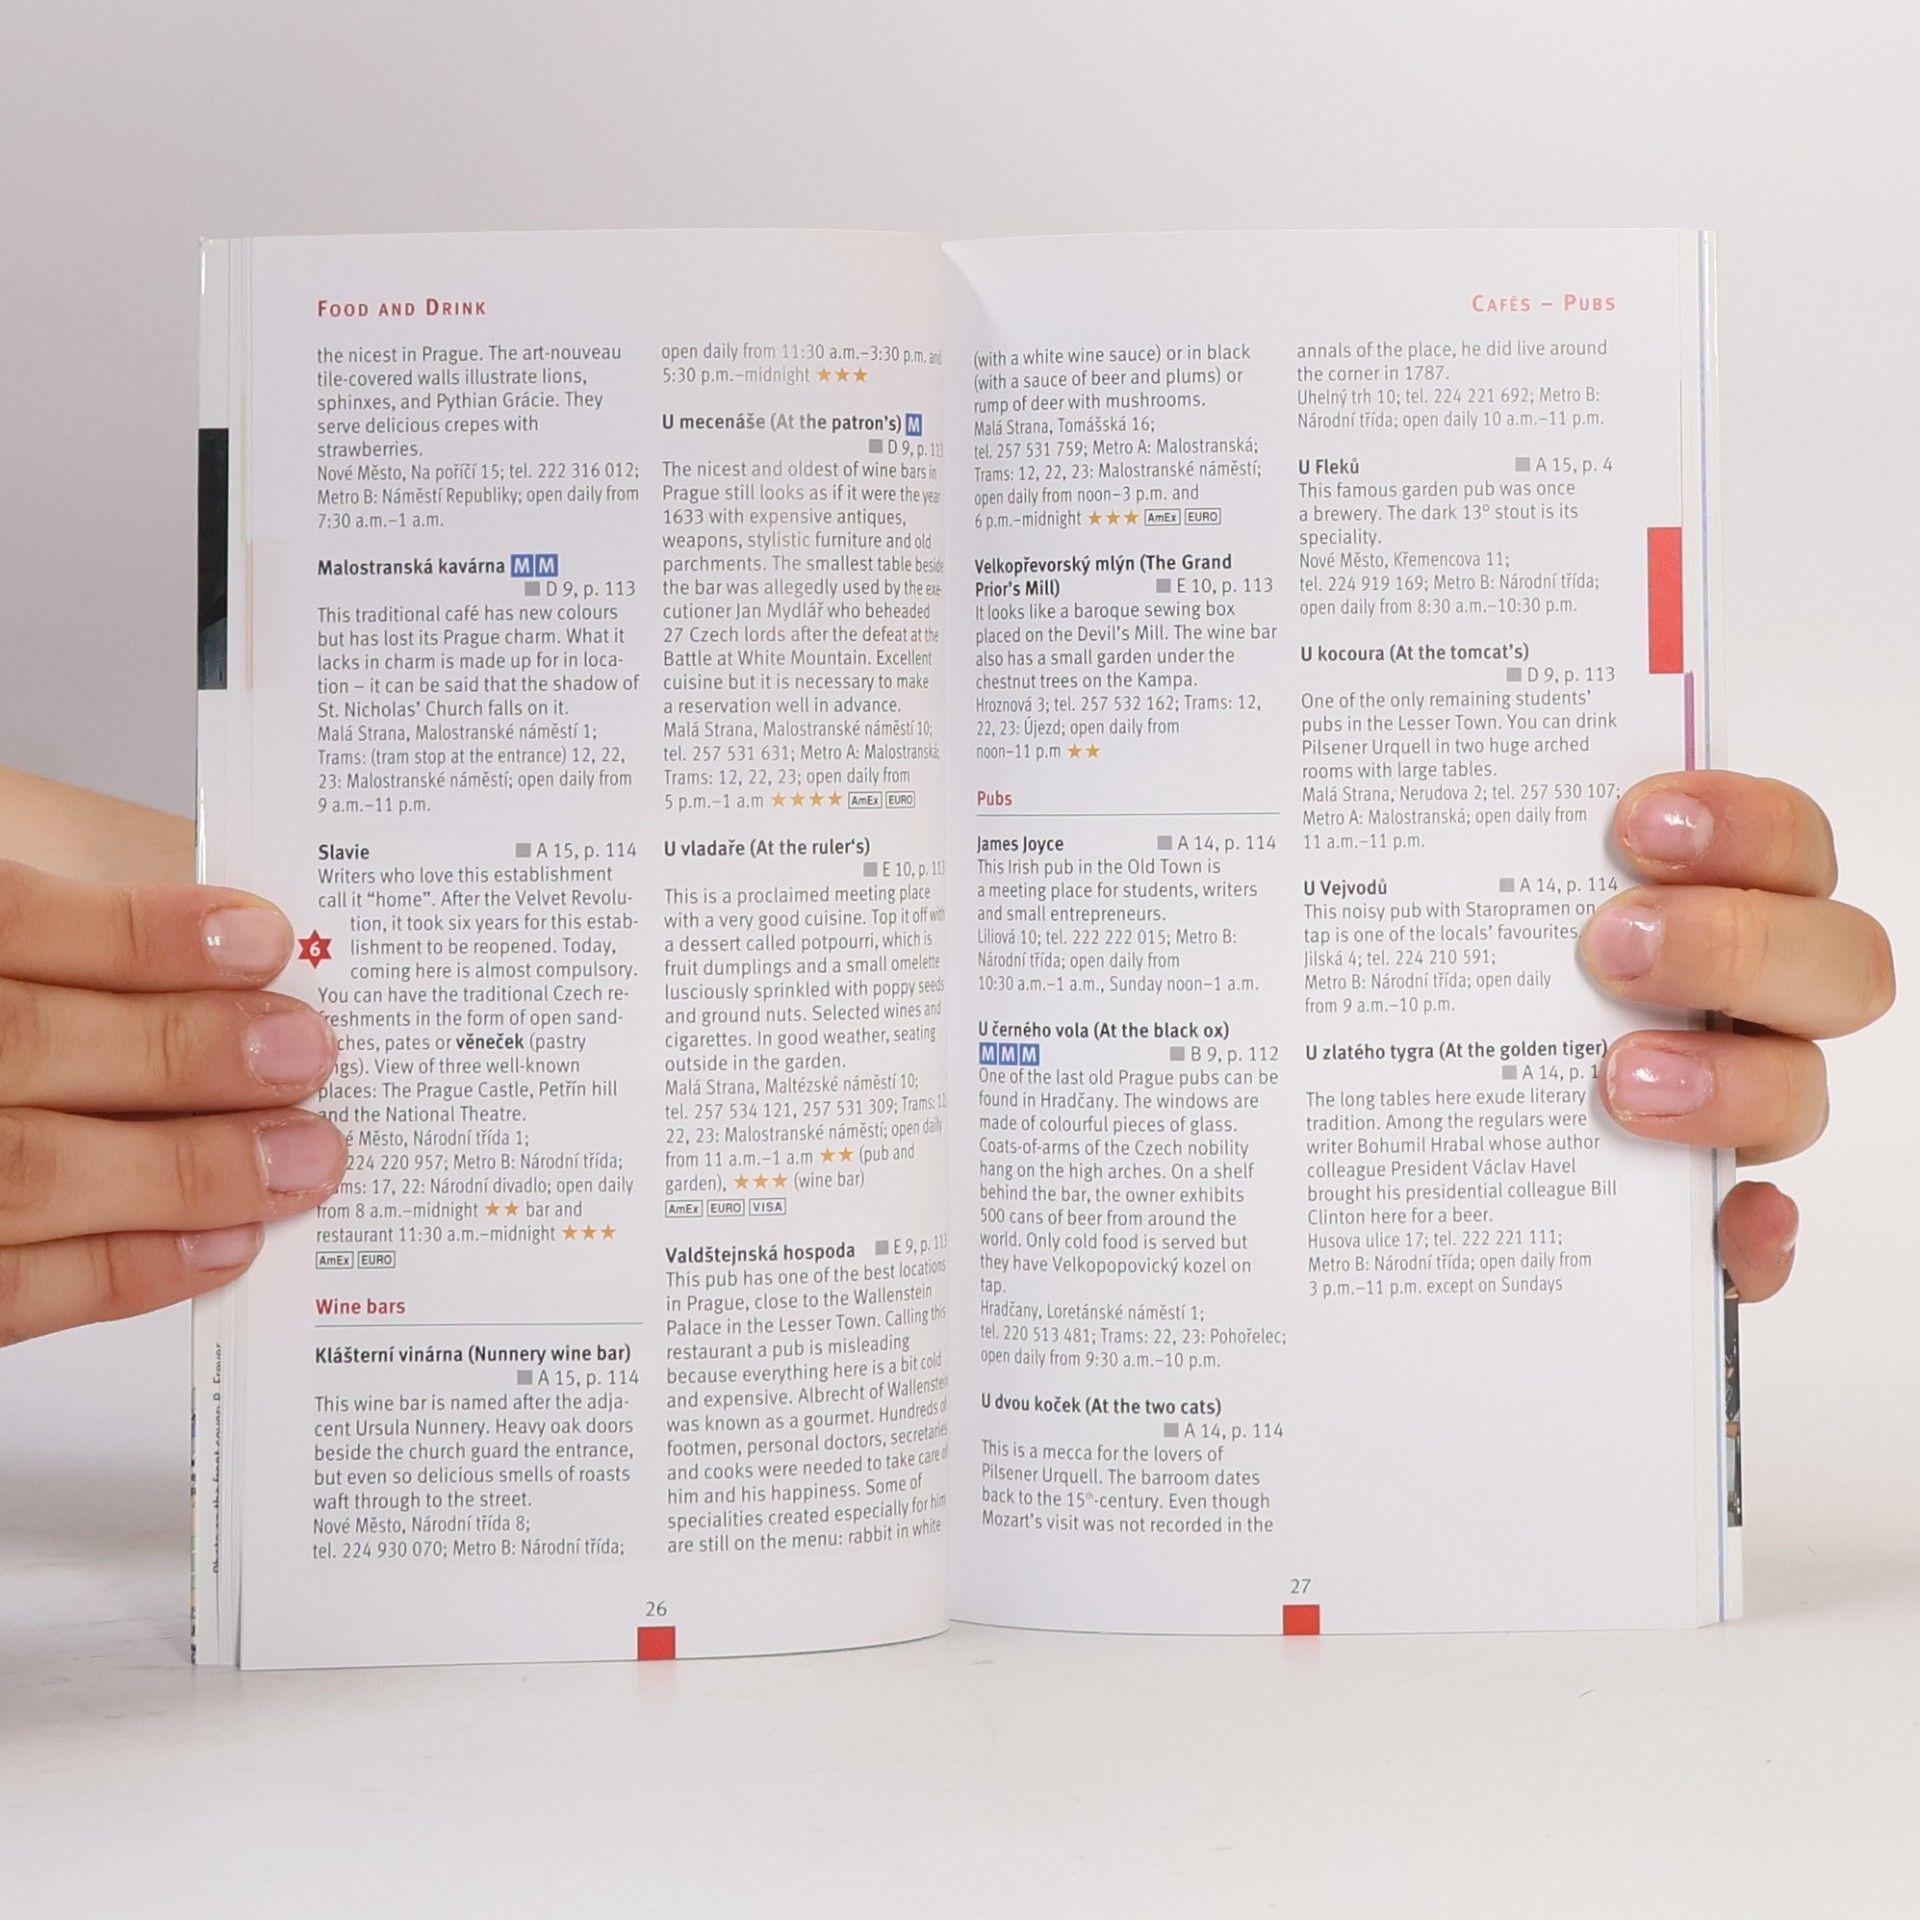 FOOD AND DRINK
the nicest in Prague. The art-nouveau
tile-covered walls illustrate lions,
sphinxes, and Pythian Grácie. They
serve delicious crepes with
strawberries.
Nové Město, Na poříčí 15; tel. 222 316 012;
Metro B: Náměstí Republiky; open daily from
7:30 a.m.–1 a.m.
Malostranská kavárna M M
D 9, p. 113
This traditional café has new colours
but has lost its Prague charm. What it
lacks in charm is made up for in loca-
tion – it can be said that the shadow of
St. Nicholas' Church falls on it.
Malá Strana, Malostranské náměstí 1;
Trams: (tram stop at the entrance) 12, 22,
23: Malostranské náměstí; open daily from
9 a.m.–11 p.m.
Slavie A 15, p. 114
Writers who love this establishment
call it “home”. After the Velvet Revolu-
tion, it took six years for this estab-
6 lishment to be reopened. Today,
coming here is almost compulsory.
You can have the traditional Czech re-
freshments in the form of open sand-
ches, pates or věneček (pastry
gs). View of three well-known
places: The Prague Castle, Petřín hill
and the National Theatre.
é Město, Národní třída 1;
224 220 957; Metro B: Národní třída;
ms: 17, 22: Národní divadlo; open daily
from 8 a.m.–midnight ★★ bar and
restaurant 11:30 a.m.–midnight ★★★
AmEx EURO
Wine bars
Klášterní vinárna (Nunnery wine bar)
A 15, p. 114
This wine bar is named after the adja-
cent Ursula Nunnery. Heavy oak doors
beside the church guard the entrance,
but even so delicious smells of roasts
waft through to the street.
Nové Město, Národní třída 8;
tel. 224 930 070; Metro B: Národní třída;
open daily from 11:30 a.m.–3:30 p.m. and
5:30 p.m.–midnight ★★★
U mecenáše (At the patron's) M
D 9, p. 113
The nicest and oldest of wine bars in
Prague still looks as if it were the year
1633 with expensive antiques,
weapons, stylistic furniture and old
parchments. The smallest table beside
the bar was allegedly used by the exe-
cutioner Jan Mydlář who beheaded
27 Czech lords after the defeat at the
Battle at White Mountain. Excellent
cuisine but it is necessary to make
a reservation well in advance.
Malá Strana, Malostranské náměstí 10;
tel. 257 531 631; Metro A: Malostranská;
Trams: 12, 22, 23; open daily from
5 p.m.–1 a.m ★★★★ AmEx EURO
U vladaře (At the ruler‘s)
E 10, p. 113
This is a proclaimed meeting place
with a very good cuisine. Top it off with
a dessert called potpourri, which is
fruit dumplings and a small omelette
lusciously sprinkled with poppy seeds
and ground nuts. Selected wines and
cigarettes. In good weather, seating
outside in the garden.
Malá Strana, Maltézské náměstí 10;
tel. 257 534 121, 257 531 309; Trams: 12,
22, 23: Malostranské náměstí; open daily
from 11 a.m.–1 a.m ★★ (pub and
garden), ★★★ (wine bar)
AmEx EURO VISA
Valdštejnská hospoda E 9, p. 113
This pub has one of the best locations
in Prague, close to the Wallenstein
Palace in the Lesser Town. Calling this
restaurant a pub is misleading
because everything here is a bit cold
and expensive. Albrecht of Wallenstein
was known as a gourmet. Hundreds of
footmen, personal doctors, secretaries
and cooks were needed to take care of
him and his happiness. Some of
specialities created especially for him
are still on the menu: rabbit in white
26
CAFÉS – PUBS
(with a white wine sauce) or in black
(with a sauce of beer and plums) or
rump of deer with mushrooms.
Malá Strana, Tomášská 16;
tel. 257 531 759; Metro A: Malostranská;
Trams: 12, 22, 23: Malostranské náměstí;
open daily from noon–3 p.m. and
6 p.m.–midnight ★★★ AmEx EURO
Velkopřevorský mlýn (The Grand
Prior's Mill) E 10, p. 113
It looks like a baroque sewing box
placed on the Devil's Mill. The wine bar
also has a small garden under the
chestnut trees on the Kampa.
Hroznová 3; tel. 257 532 162; Trams: 12,
22, 23: Újezd; open daily from
noon–11 p.m ★★
Pubs
James Joyce A 14, p. 114
This Irish pub in the Old Town is
a meeting place for students, writers
and small entrepreneurs.
Liliová 10; tel. 222 222 015; Metro B:
Národní třída; open daily from
10:30 a.m.–1 a.m., Sunday noon–1 a.m.
U černého vola (At the black ox)
M M M B 9, p. 112
One of the last old Prague pubs can be
found in Hradčany. The windows are
made of colourful pieces of glass.
Coats-of-arms of the Czech nobility
hang on the high arches. On a shelf
behind the bar, the owner exhibits
500 cans of beer from around the
world. Only cold food is served but
they have Velkopopovický kozel on
tap.
Hradčany, Loretánské náměstí 1;
tel. 220 513 481; Trams: 22, 23: Pohořelec;
open daily from 9:30 a.m.–10 p.m.
U dvou koček (At the two cats)
A 14, p. 114
This is a mecca for the lovers of
Pilsener Urquell. The barroom dates
back to the 15th-century. Even though
Mozart's visit was not recorded in the
annals of the place, he did live around
the corner in 1787.
Uhelný trh 10; tel. 224 221 692; Metro B:
Národní třída; open daily 10 a.m.–11 p.m.
U Fleků A 15, p. 4
This famous garden pub was once
a brewery. The dark 13° stout is its
speciality.
Nové Město, Křemencova 11;
tel. 224 919 169; Metro B: Národní třída;
open daily from 8:30 a.m.–10:30 p.m.
U kocoura (At the tomcat's)
D 9, p. 113
One of the only remaining students'
pubs in the Lesser Town. You can drink
Pilsener Urquell in two huge arched
rooms with large tables.
Malá Strana, Nerudova 2; tel. 257 530 107;
Metro A: Malostranská; open daily from
11 a.m.–11 p.m.
U Vejvodů A 14, p. 114
This noisy pub with Staropramen on
tap is one of the locals' favourites.
Jilská 4; tel. 224 210 591;
Metro B: Národní třída; open daily
from 9 a.m.–10 p.m.
U zlatého tygra (At the golden tiger)
A 14, p. 1
The long tables here exude literary
tradition. Among the regulars were
writer Bohumil Hrabal whose author
colleague President Václav Havel
brought his presidential colleague Bill
Clinton here for a beer.
Husova ulice 17; tel. 222 221 111;
Metro B: Národní třída; open daily from
3 p.m.–11 p.m. except on Sundays
27